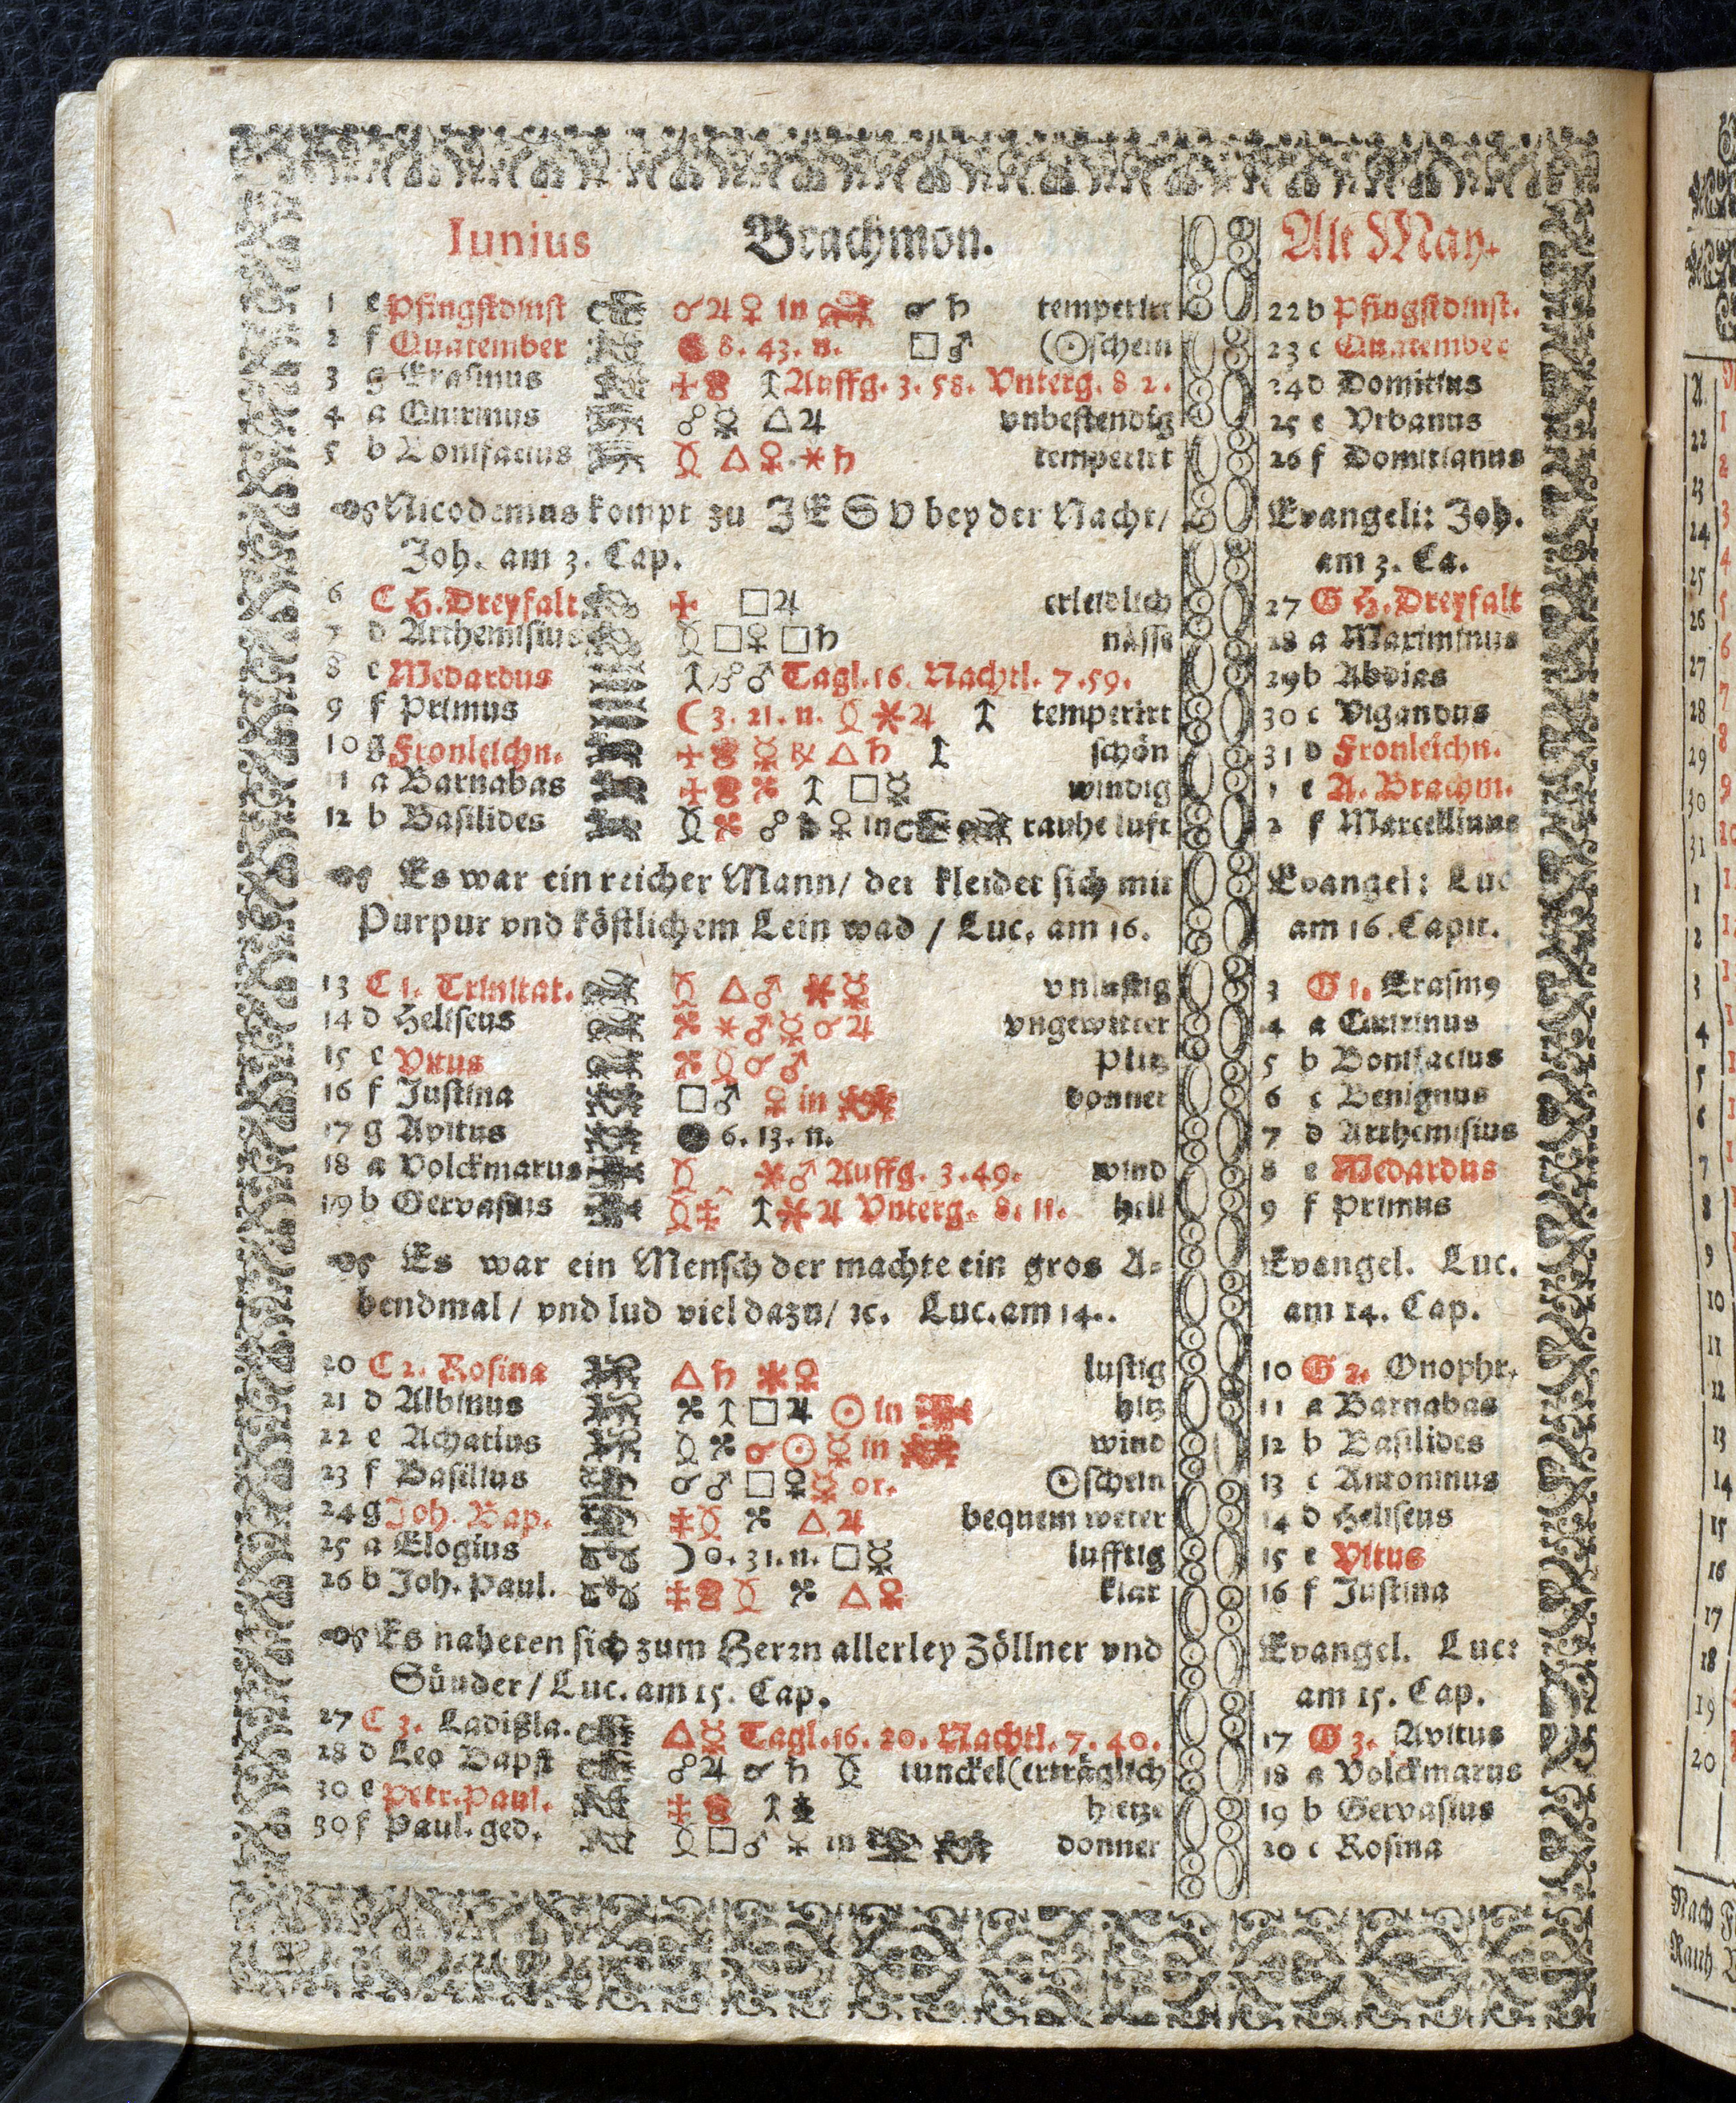 Iunius Brachmon. Alt May.
1 e Pfingstdinst ☌ ♃ ♀ in ☌ ♄ temperirt 22 b Pfingstdinst.
2 f Quatember 8. 43. n. □ ♂ (☉schein 23 c Quatember
3 g Erasmus Auffg. 3. 58. Vnterg. 8 2. 24 d Domitius
4 a Quirinus ☍ ☿ △ ♃ vnbestendig 25 e Vrbanus
5 b Bonifacius △ ♀ ✶ ♄ temperirt 26 f Domitianus
Nicodemus kompt zu JESV bey der Nacht/ Evangeli: Joh.
Joh. am 3. Cap. am 3. Ca.
6 C H. Dreyfalt □ ♃ erleidlich 27 G H. Dreyfalt
7 d Arthemisius □ ♀ □ ♄ nässe 28 a Maximinus
8 e Medardus ☍ ♂ Tagl. 16. Nachtl. 7. 59. 29 b Abdias
9 f Primus ☾ 3. 21. n. ✶ ♃ temperirt 30 c Vigandus
10 g Fronleichn. ☿ ℞ △ ♄ schön 31 d Fronleichn.
11 a Barnabas □ ☿ windig 1 e A. Brachm.
12 b Basilides ☍ ♄ ♀ in rauhe luft 2 f Marcellinus
Es war ein reicher Mann/ der kleidet sich mit Evangel: Luc
Purpur vnd köstlichem Lein wad / Luc. am 16. am 16. Capit.
13 C 1. Trinitat. △ ♂ ✶ ☿ vnlustig 3 G 1. Erasm9
14 d Heliseus ✶ ♂ ☿ ☌ ♃ vngewitter 4 a Quirinus
15 e Vitus ☌ ♂ Plitz 5 b Bonifacius
16 f Justina □ ♂ ♀ in donner 6 c Benignus
17 g Avitus ● 6. 13. n. 7 d Arthemisius
18 a Volckmarus ✶ ♂ Auffg. 3. 49. wind 8 e Medardus
19 b Gervasius ✶ ♃ Vnterg. 8. 11. hell 9 f Primus
Es war ein Mensch der machte ein gros A= Evangel. Luc.
bendmal/ vnd lud viel dazu/ ꝛc. Luc. am 14.. am 14. Cap.
20 C 2. Rosina △ ♄ ✶ ♀ lustig 10 G 2. Onophr.
21 d Albinus □ ♃ ☉ in hitz 11 a Barnabas
22 e Achatius ☌ ☉ ☿ in wind 12 b Basilides
23 f Basilius ☌ ♂ □ ♀ ☿ or. ☉schein 13 c Antoninus
24 g Joh. Bap. △ ♃ bequem weter 14 d Heliseus
25 a Elogius ☽ 0. 31. n. □ ☿ lufftig 15 e Vitus
26 b Joh. Paul. △ ♀ klar 16 f Justina
Es naheten sich zum Herrn allerley Zöllner vnd Evangel. Luc:
Sünder/ Luc. am 15. Cap. am 15. Cap.
27 C 3. Ladißla. △ ☿ Tagl. 16. 20. Nachtl. 7. 40. 17 G 3. Avitus
28 d Leo Bapst ☍ ♃ ☌ ♄ tunckel (erträglich 18 a Volckmarus
30 e Petr. Paul. hietze 19 b Gervasius
30 f Paul. ged. □ ♂ ☿ in donner 20 c Rosina